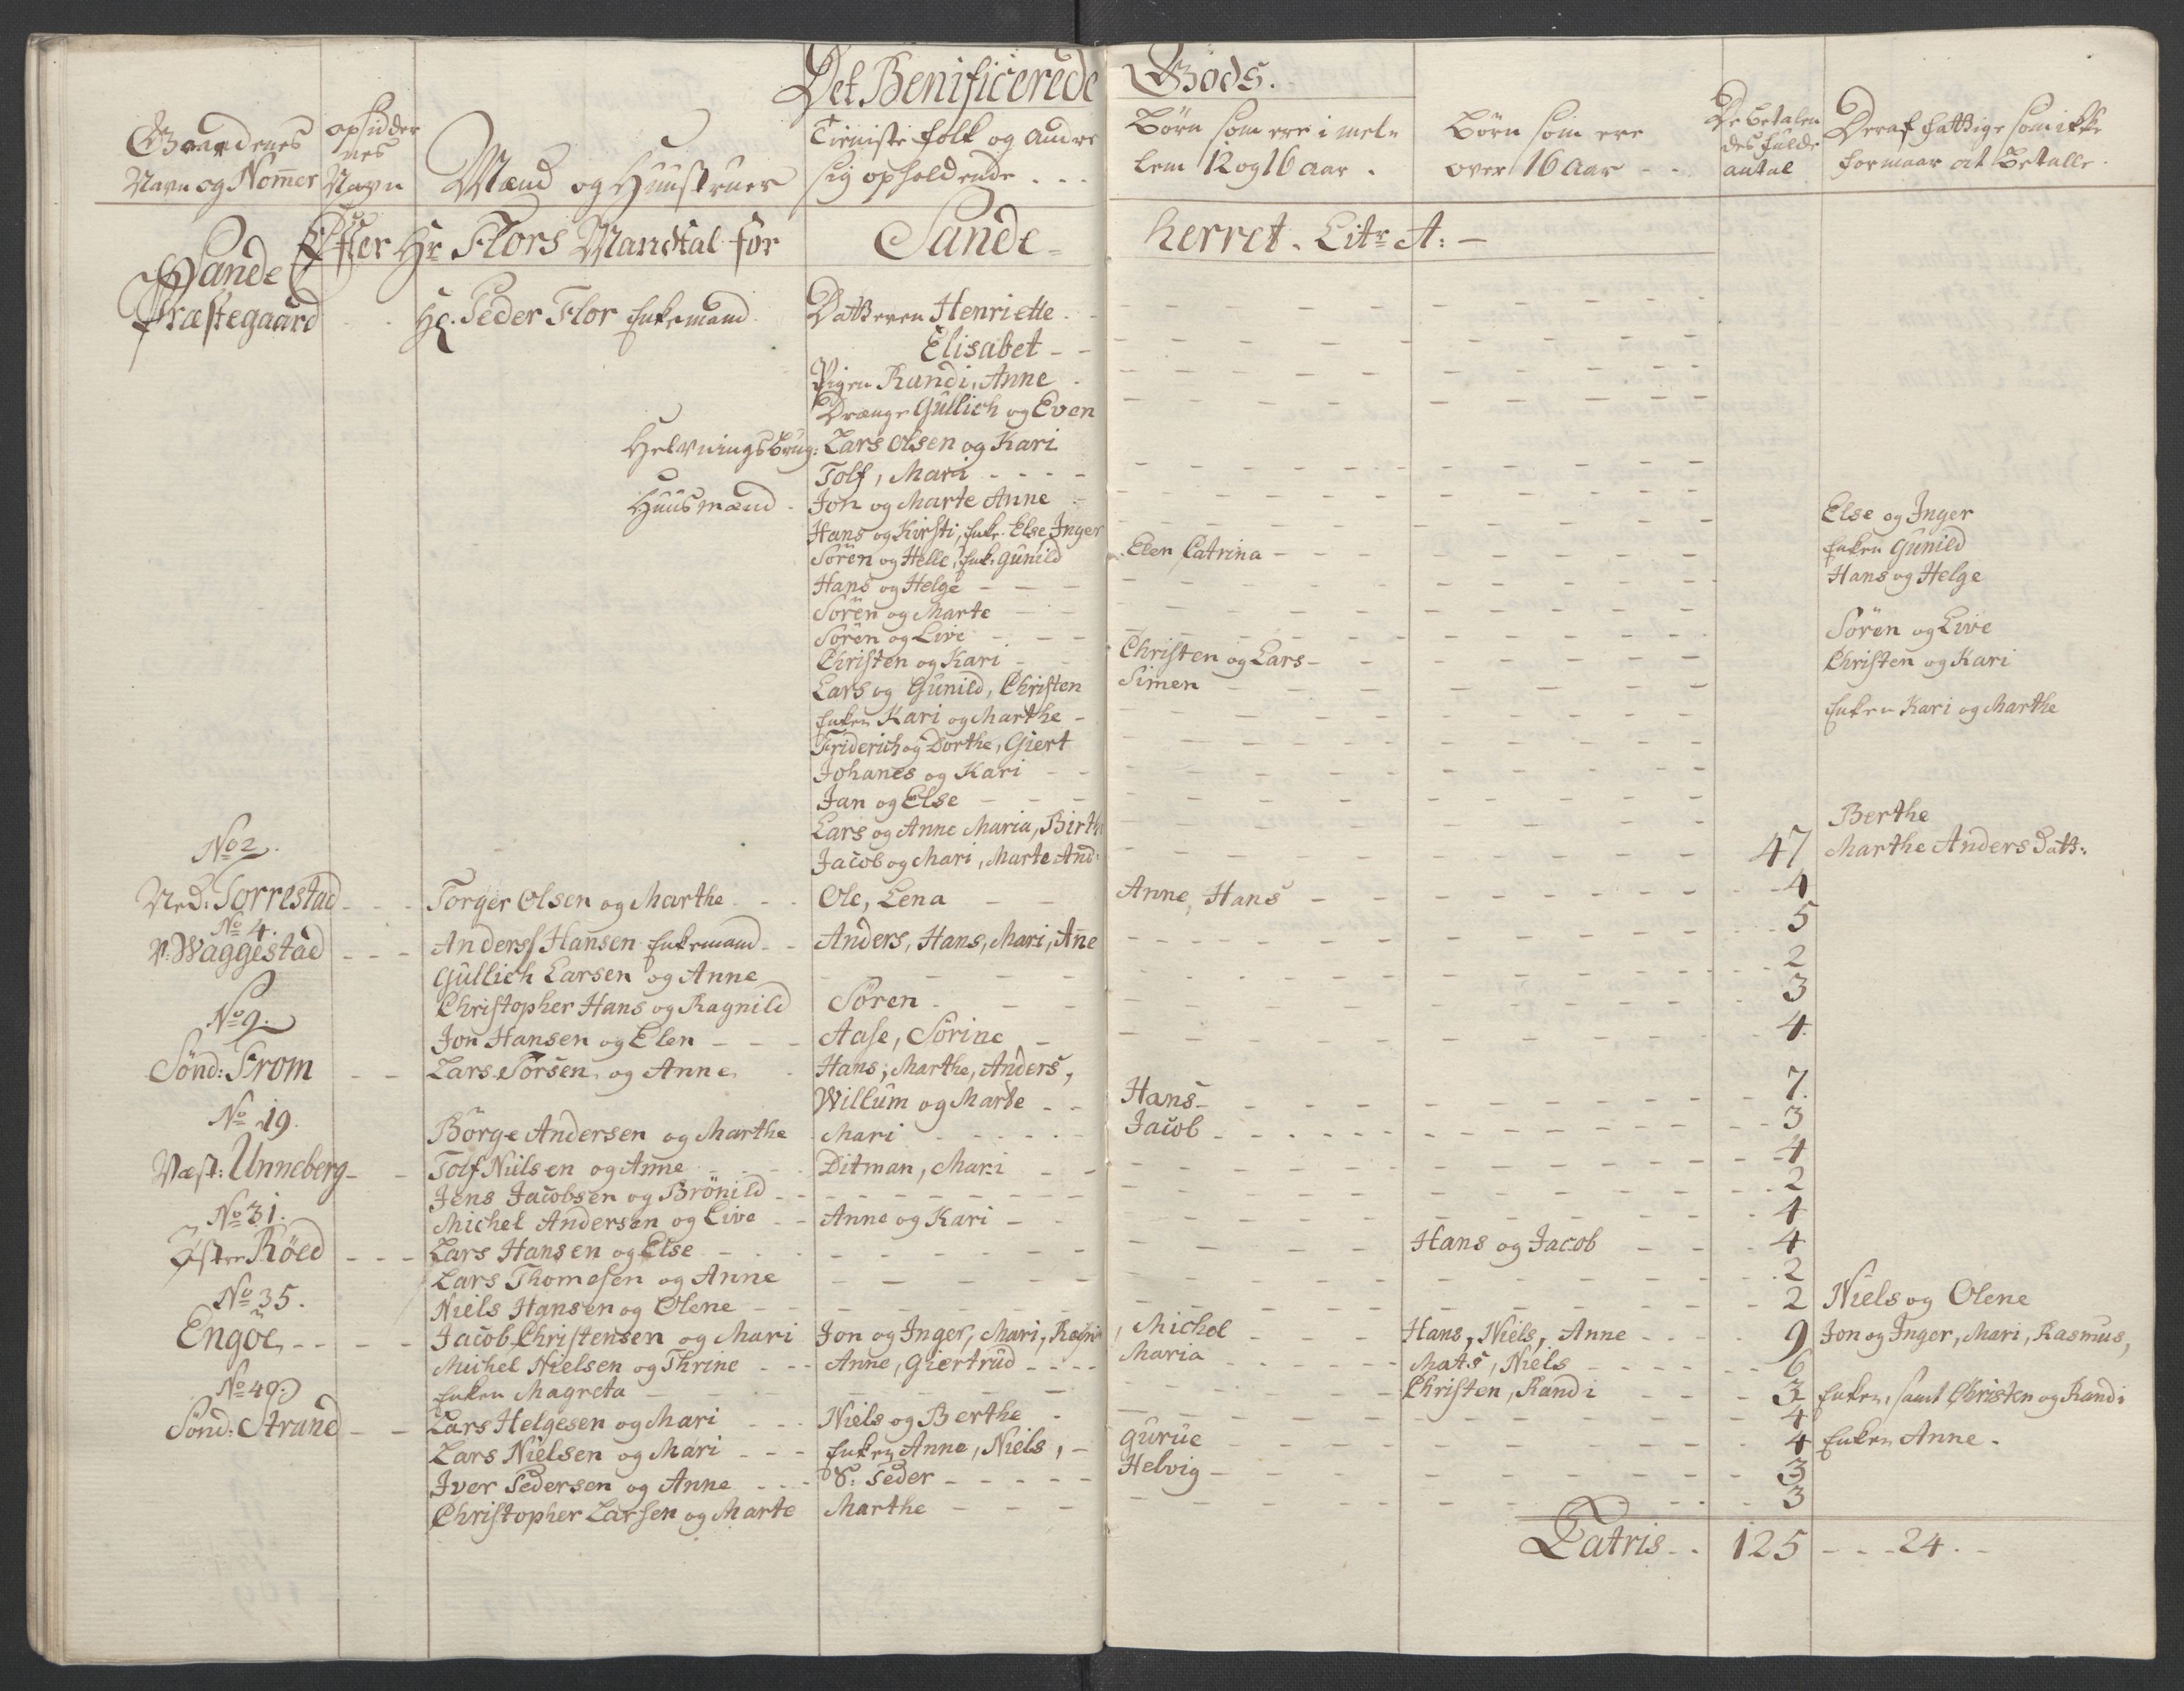 Det Benificerede Gods.
Gaardenes Navn og Nom̄er
opsidder nes Navn
Mænd og Huustruer
Tieniste folk og andre sig opholdende . . .
Börn som ere i mel= lem 12 og 16 aar .
Börn som ere over 16 Aar - -
De betalen des fulde antal
Deraf fattige som ikke formaar at Betalle .
Efter Hr Flors Mandtal for Sande= herret. Litr A: -
Sande Præstegaard - - Hr. Peder Flor Enkemand. Datteren Henriette . -
Elisabet - -
Pigen Randi, Anne .
Drænge Gullich og Even
Helvningsbrug: Lars Olsen og Kari
Tolf, Mari - - - -
Huusmænd . Jon og Marte Anne -
Hans og Kirsti, Enke. Else Inger Else og Inger
Sören og Helle, Enk: Gunild Elen Catrina - - - Enken Gunild
Hans og Helge - - - Hans og Helge
Sören og Marte - -
Sören og Live - - - Sören og Live
Christen og Kari - - Christen og Lars - - Christen og Kari
Lars og Gunild, Christen Simen
Enken Kari og Marthe - Enken Kari og Marthe
Friderich og Dorthe, Giert
Johanes og Kari - -
Jan og Else - - -
Lars og Anne Maria, Birth Berthe
No 2. Jacob og Mari, Marte And: 47 Marthe Anders Datt:
Ned: Torrestad - - - Torger Olsen og Marthe - - Ole, Lena - - Anne, Hans - - 4
No 4.
N: Waggestad - - - Anders Hansen Enkemand - - Anders, Hans, Mari, An̄e 5
Gullich Larsen og Anne - - - 2
Christopher Hans og Ragnild Sören - - - 3
No 9. Jon Hansen og Elen - - - Aase, Sörine - 4
Sönd: From - - Lars Sörsen og Anne . Hans, Marthe, Anders,
Willum og Marte - - Hans - - - 7.
No 19. Börge Andersen og Marthe Mari - - - Jacob - - - 3
Væst: Unneberg - - Tolf Nilsen og Anne - - Ditman, Mari - - 4
Jens Jacobsen og Brönild - - - 2
No 31. Michel Andersen og Live - - Anne og Kari - - 4
Øster Röed - - - Lars Hansen og Else - - - Hans og Jacob - - 4
Lars Thomesen og Anne - - - 2
No 35. Niels Hansen og Olene - - - 2 Niels og Olene
Engöe - - - Jacob Christensen og Mari Jon og Inger, Mari, Rasm , Michel - - Hans, Niels, Anne - - 9 Jon og Inger, Mari, Rasmus,
Michel Nielsen og Thrine - - Anne, Giertrud - - Maria - - Mats, Niels - - 6
No 40. Enken Magreta - - - Christen, Randi - - 3 Enken, samt Christen og Randi
Sönd: Strand - - Lars Helgesen og Mari - - Niels og Berthe - 4
Lars Nielsen og Mari - - Enken Anne, Niels, - Gurue - - 4 Enken Anne.
Iver Pedersen og Anne - - S: Peder - - Helvig - - 3
Christopher Larsen og Marte Marthe - - - 3
Latris - . 125 - - - 24 . -